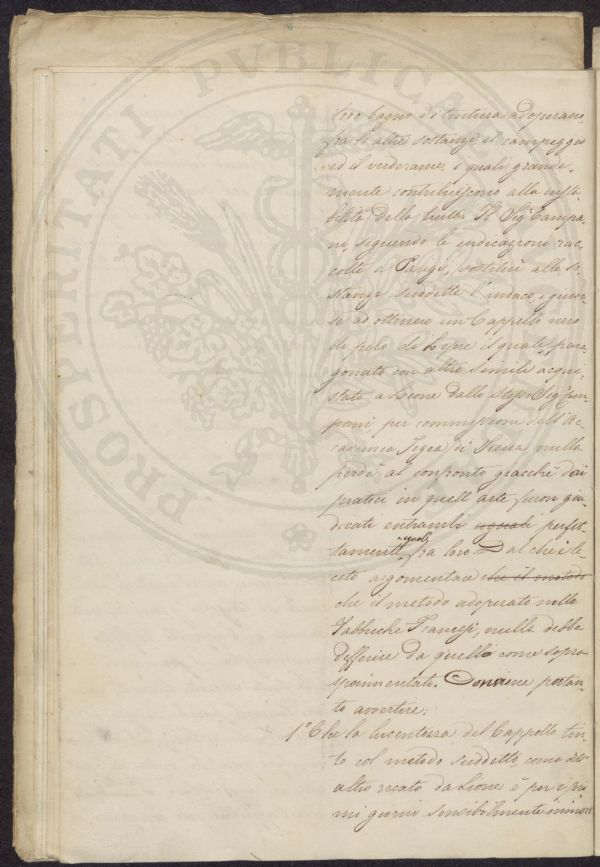 PROSPERITATI PVBLICAE
loro bagno di tintura adoperano,
fra le altre sostanze, il campeggio
ed il verderame, i quali grande-
mente contribuiscono alla insta-
bilità della tinta. Il Sigr Campa-
ni, seguendo le indicazioni rac-
colte a Parigi, sostituì alle so-
stanze suddette l'indaco, e giun-
se ad ottenere un Cappello nero
di pelo di Lepre il quale, para-
gonato con altro simile acqui-
stato a Lione dallo stesso Sigr Cam-
pani, per commissione dell'Ac-
cademia Tegea di Siena nulla
perdè al confronto giacchè dai
pratici in quell'arte furon giu-
dicati entrambi uguali perfet-
tamente uguali fra loro. Dal che è le-
cito argomentare che il metodo
che il metodo adoperato nelle
Fabbriche Francesi, nulla debba
differire da quello come sopra
sperimentato. Conviene pertan-
to avvertire:
1° Che la lucentezza del Cappello tin-
to col metodo suddetto, come dell'
altro recato da Lione è per i pri-
mi giorni sensibilmente minore